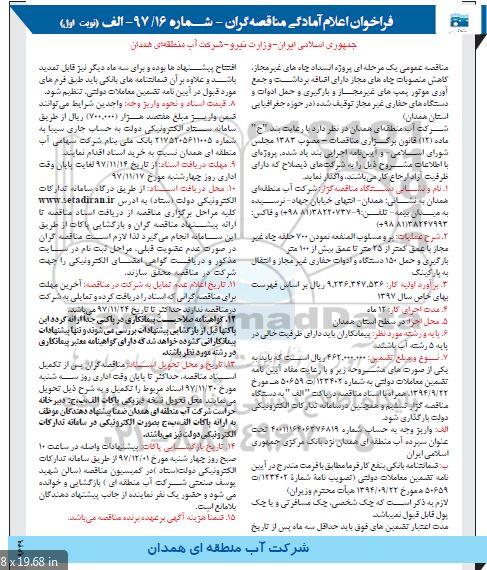 فراخوان اعلام آمادگی مناقصه گران - شماره ۹۷/۱۶- الف (نوبت اول)
جمهوری اسلامی ایران - وزارت نیرو - شرکت آب منطقه‌ای همدان
مناقصه عمومی یک مرحله ای پروژه انسداد چاه های غیرمجاز،
کاهش منصوبات چاه های مجاز دارای اضافه برداشت و جمع
آوری موتور پمپ های غیرمجاز و بارگیری و حمل ادوات و
دستگاه های حفاری غیر مجاز توقیف شده (در حوزه جغرافیایی
استان همدان)
شرکت آب منطقه‌ای همدان در نظر دارد با رعایت بند "ج"
ماده (۱۲) قانون برگزاری مناقصات - مصوب ۱۳۸۳ مجلس
شورای اسلامی - و آیین‌نامه اجرایی بند یاد شده، پروژه‌ای
با اطلاعات مشروح ذیل را به شرکت‌های ذیصلاح که دارای
ظرفیت آزاد ارجاع کار می‌باشند، واگذار نماید.
۱. نام و نشانی دستگاه مناقصه‌گزار: شرکت آب منطقه‌ای
همدان به نشانی: همدان- انتهای خیابان جهاد- نرسیده
به میدان بیمه- تلفن: ۹-۳۸۲۲۰۷۳۷(۰۹۸۸۱) و فاکس:
۳۸۲۴۷۹۹۳(۰۹۸۸۱)
۲. شرح عملیات: پر و مسلوب المنفعه نمودن ۷۰۰ حلقه چاه غیر
مجاز با عمق کمتر از ۲۵ متر تا عمق بیش از ۱۰۰ متر
بارگیری و حمل ۱۵۰ دستگاه و ادوات حفاری غیر مجاز و انتقال
به پارکینگ
۳. برآورد اولیه کار: ۹,۲۳۶,۳۴۷,۵۳۶ ریال بر اساس فهرست
بهای خاص سال ۱۳۹۷
۴. مدت اجرای کار: ۱۲ ماه
۵. محل اجرا: در سطح استان همدان
۶. پایه و رشته مورد نظر: پیمانکاران باید دارای ظرفیت خالی در
پایه ۵ رشته آب باشند.
۷. نوع و مبلغ تضمین: ۴۶۲,۰۰۰,۰۰۰ ریال است که باید به
یکی از صورت های مشروحه زیر و با رعایت مفاد آیین نامه
تضمین معاملات دولتی به شماره ۱۲۳۴۰۲/ت ۵۰۶۵۹ هـ مورخ
۱۳۹۴/۰۹/۲۲، همراه با اسناد مناقصه در پاکت "الف" به دستگاه
مناقصه گزار تسلیم و همچنین در سامانه تدارکات الکترونیکی
دولت بارگذاری شود.
الف: واریز وجه به حساب شماره ۴۰۰۱۱۱۶۴۰۶۳۷۶۸۱۹ تحت
عنوان سپرده آب منطقه ای همدان نزد بانک مرکزی جمهوری
اسلامی ایران
ب: ضمانتنامه بانکی بنفع کارفرما مطابق با فرمت مندرج در آیین
نامه تضمین معاملات دولتی (تصویب نامه شماره ۱۲۳۴۰۲/ت
۵۰۶۵۹ هـ مورخ ۱۳۹۴/۰۹/۲۲ هیأت محترم وزیران)
لازم به ذکر است که چک شخصی، چک مسافرتی و یا چک
پول قابل قبول نمیباشد.
مدت اعتبار تضمین های فوق باید حداقل سه ماه پس از تاریخ
افتتاح پیشنهاد ها بوده و برای سه ماه دیگر نیز قابل تمدید
باشد و علاوه بر آن ضمانتنامه های بانکی باید طبق فرم های
مورد قبول در آیین نامه تضمین معاملات دولتی، تنظیم شود.
۸. قیمت اسناد و نحوه واریز وجه: واجدین شرایط می‌توانند
ضمن واریز مبلغ هفتصد هزار (۷۰۰,۰۰۰) ریال از طریق
سامانه ستاد الکترونیکی دولت به حساب جاری سیبا به
شماره ۲۱۷۵۲۰۵۶۱۱۰۰۵ بانک ملی بنام شرکت سهامی آب
منطقه ای همدان نسبت به خرید اسناد اقدام نمایند.
۹. مهلت دریافت اسناد: از تاریخ ۹۷/۱۱/۱۴ لغایت پایان وقت
اداری روز چهارشنبه مورخ ۹۷/۱۱/۱۷
۱۰. محل دریافت اسناد: از طریق درگاه سامانه تدارکات
الکترونیکی دولت (ستاد) به آدرس www.setadiran.ir
کلیه مراحل برگزاری مناقصه از دریافت اسناد مناقصه تا
ارائه پیشنهاد مناقصه گران و بازگشایی پاکات از طریق
این سامانه انجام می‌گردد لذا لازم است مناقصه گران
در صورت عدم عضویت قبلی، مراحل ثبت نام در سایت
مذکور و دریافت گواهی امضای الکترونیکی را جهت
شرکت در مناقصه محقق سازند.
۱۱. تاریخ اعلام عدم تمایل به شرکت در مناقصه: آخرین مهلت
برای مناقصه گرانی که اسناد را دریافت کرده و تمایلی به شرکت
در مناقصه ندارند حداکثر تا پایان وقت ۹۷/۱۱/۲۴ می باشد.
۱۲. گواهینامه صلاحیت پیمانکاری در پاکتی جدا ارائه گردد این
پاکتها قبل از بازگشایی پیشنهادات بررسی می‌شوند و تنها پیشنهادات
پیمانکارانی گشوده خواهد شد که دارای گواهینامه معتبر پیمانکاری
در رشته مورد نظر باشند.
۱۳. تاریخ و محل تحویل اسناد: مناقصه گران پس از تکمیل
اسناد مناقصه، حداکثر تا پایان وقت اداری روز سه شنبه
مورخ ۹۷/۱۱/۳۰ اسناد مربوط را تکمیل و به شرح ذیل تحویل
می‌نمایند. محل تحویل نسخه فیزیکی پاکات الف، ب، ج: دبیرخانه
حراست شرکت آب منطقه ای همدان ضمنا پیشنهاد دهندگان موظف
به ارائه پاکات الف، ب، ج بصورت الکترونیکی در سامانه تدارکات
الکترونیکی دولت نیز می‌باشند.
۱۴. تاریخ بازگشایی پاکات: پیشنهادات واصله در ساعت ۱۰
صبح روز چهارشنبه مورخ ۹۷/۱۲/۰۱ از طریق سامانه تدارکات
الکترونیکی دولت (ستاد) در کمیسیون مناقصه (سالن شهید
یوسف صنعتی شرکت آب منطقه ای) بازگشایی و خوانده
می شود و حضور یک نفر نماینده از جانب پیشنهاد دهندگان
بلامانع است.
۱۵. ضمنا هزینه آگهی بر عهده برنده مناقصه می‌باشد.
شرکت آب منطقه ای همدان
8 x 19.68 in